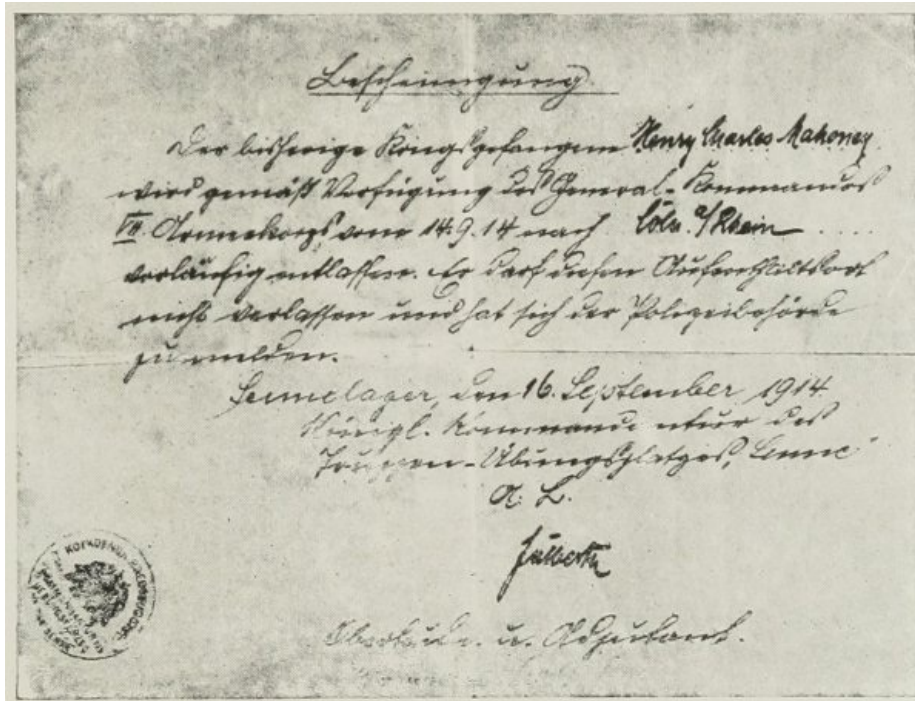 Bescheinigung.
Der bisherige Kriegsgefangene Henry Charles Mahoney
wird gemäß Verfügung des General-Kommandos
VII. Armeekorps vom 14.9.14 nach Cöln a/Rhein ....
vorläufig entlassen. Er darf diesen Aufenthaltsort
nicht verlassen und hat sich der Polizeibehörde
zu melden.
Sennelager, den 16. September 1914.
Königl. Kommandantur des
Truppen-Übungsplatzes, Senne
Oberleutn. u. Adjutant.